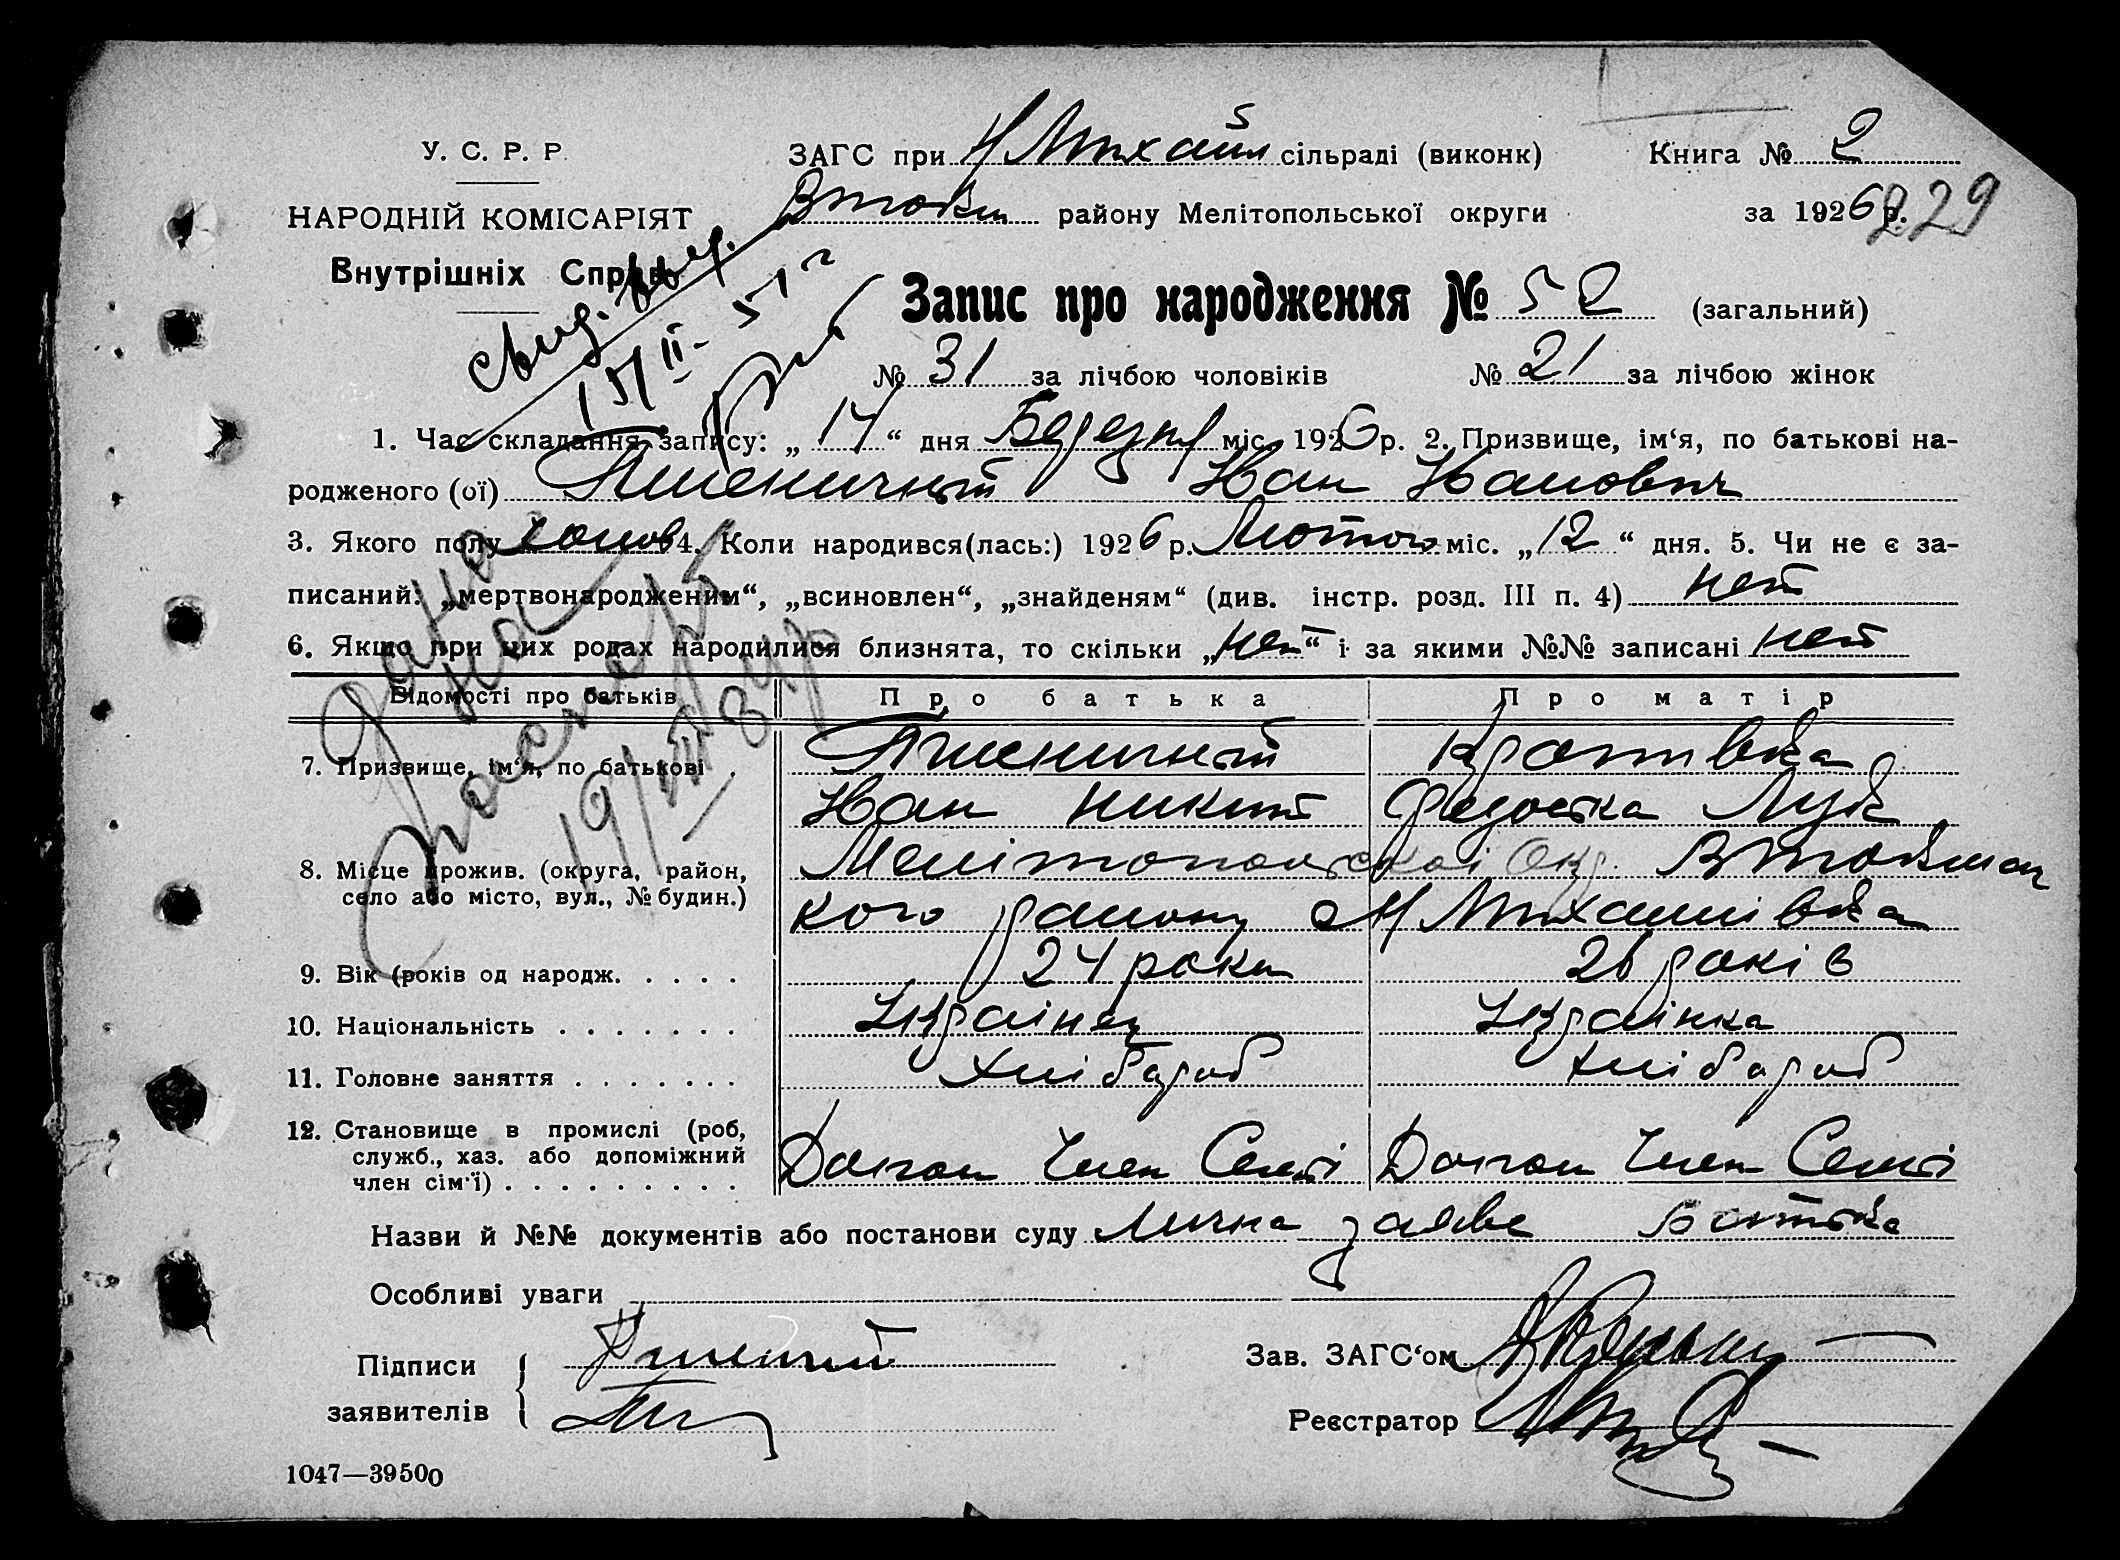 У. С. Р. Р.
НАРОДНІЙ КОМІСАРІЯТ
Внутрішніх Справ
ЗАГС при Н Михайл сільраді (виконк) Книга № 2
Втокм району Мелітопольської округи за 1926 р. 229
свид. выд.
15/II-51 г
Запис про народження № 52 (загальний)
№ 31 за лічбою чоловіків № 21 за лічбою жінок
1. Час складання запису: „ 17 “ дня Березня міс. 1926 р. 2. Призвище, ім‘я, по батькові на-
родженого (ої) Пшеничный Иван Иванович
3. Якого полу холов 4. Коли народився(лась:) 1926 р. Лютого міс. „ 12 “ дня. 5. Чи не є за-
писаний: „мертвонародженим“, „всиновлен“, „знайденям“ (див. інстр. розд. III п. 4) нет
6. Якщо при цих родах народилися близнята, то скільки „нет“ і за якими №№ записані нет
Відомості про батьків Про батька Про матір
7. Призвище, ім‘я, по батькові Пшеничный
Иван Никит Федоска Лук
8. Місце прожив. (округа, район, Мелітопольскої Окр.
село або місто, вул., № будин.) кого району Н Михайлівка
9. Вік (років од народж. 24 роки 26 років
10. Національність Українец Українка
11. Головне заняття Хлібороб Хлібороб
12. Становище в промислі (роб, служб., хаз. або допоміжний член сім‘ї) Допом Член Семї Допом Член Семї
Назви й №№ документів або постанови суду Лична заява Батька
Особливі уваги
Підписи
заявителів
Зав. ЗАГС‘ом
Реєстратор
1047—39500